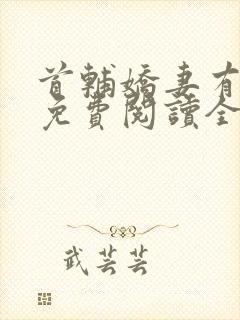 首輔嬌妻有
免費閱讀全
武芸芸